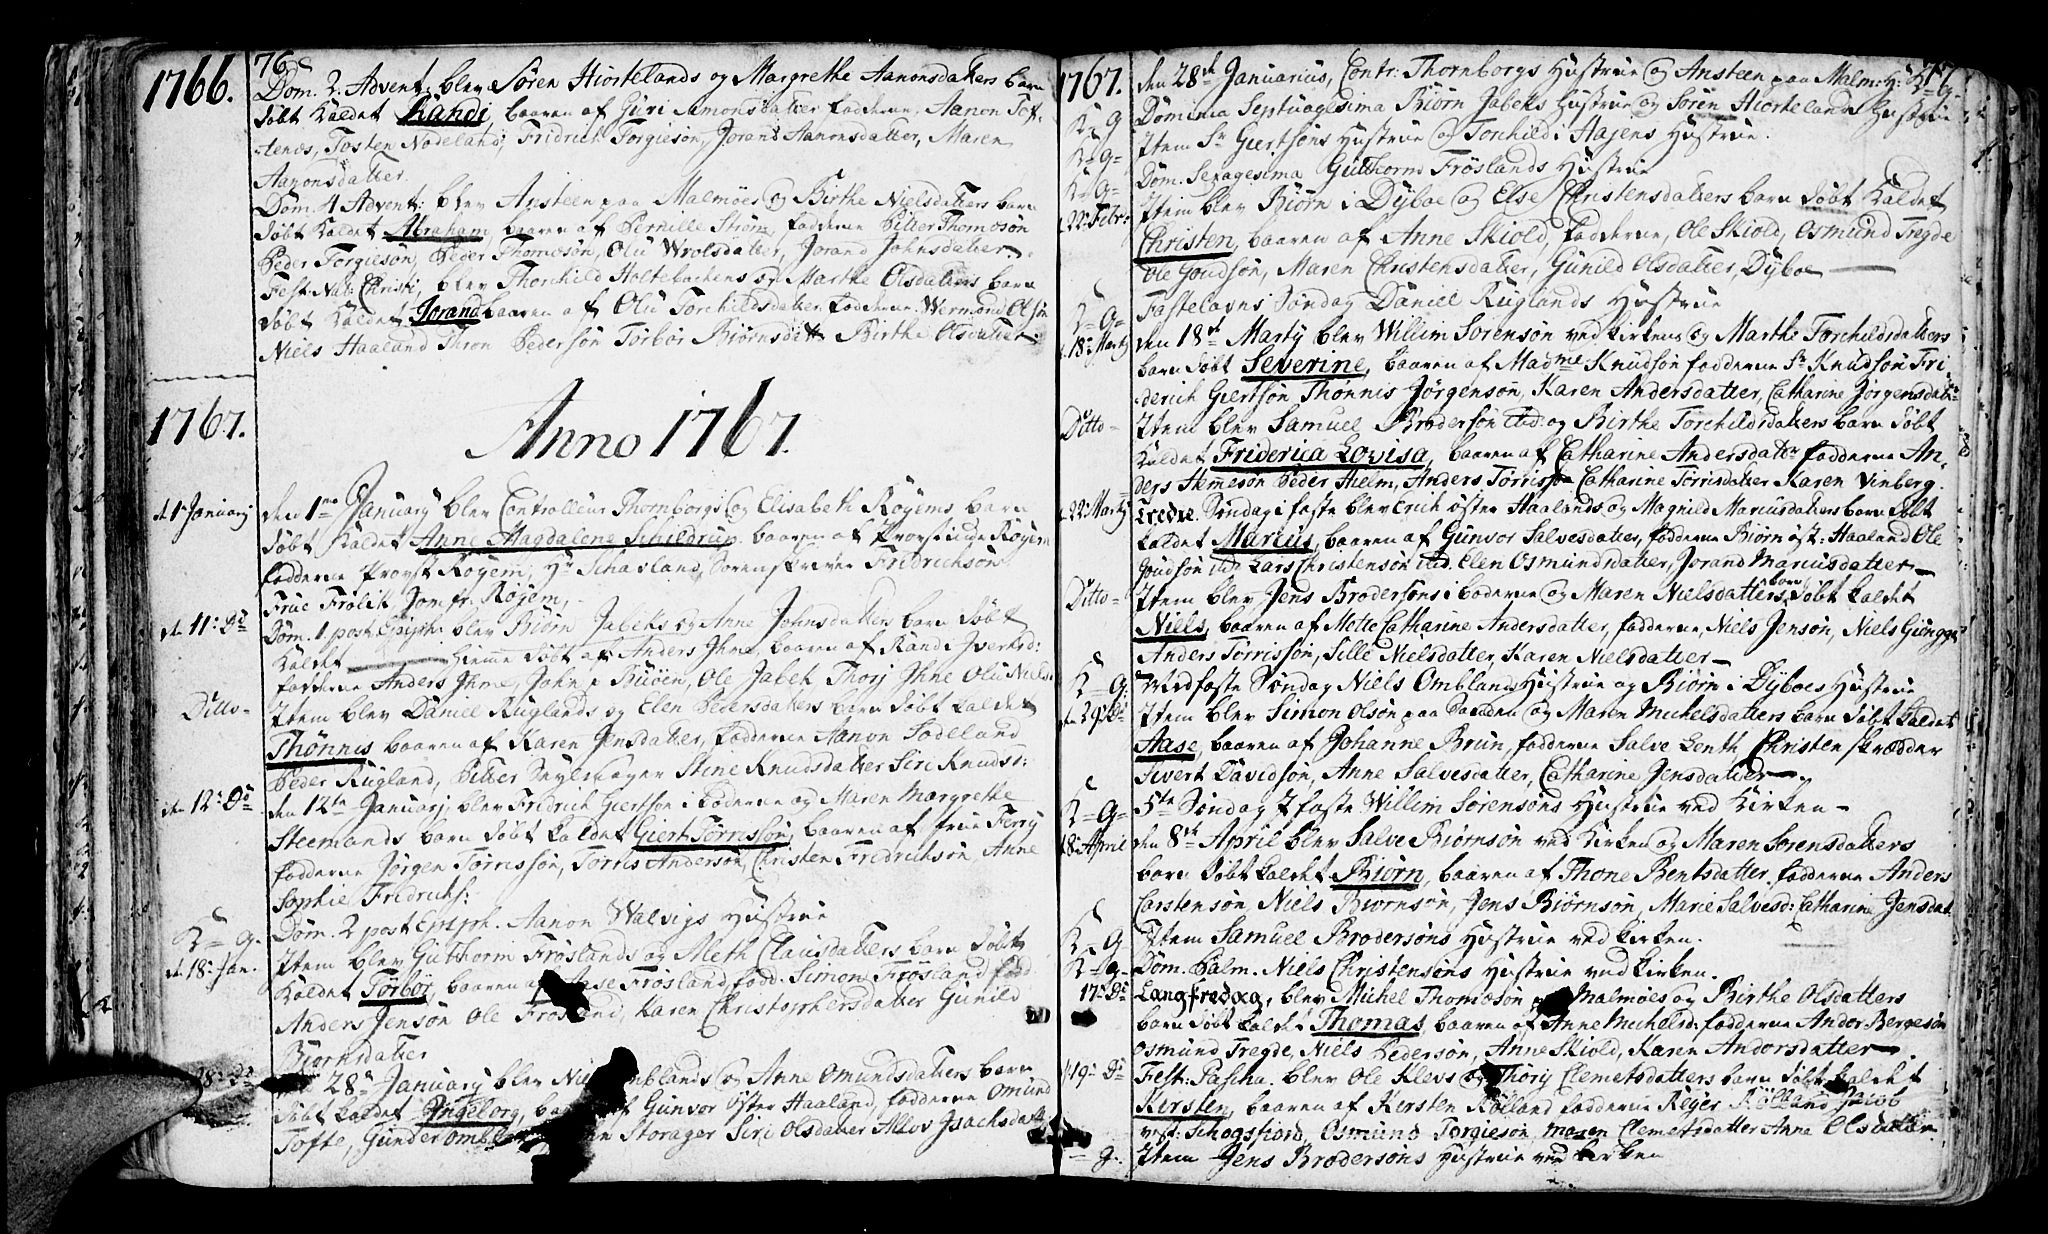 76.
1766.
Dom. 2. Advent: blev Sören Hiortelands og Margrethe Aanonsdatters barn
döbt kaldet Randi, baaren af Guri Simonsdatter fadderne, Aanon Tof-
tenæs, Tosten Nodeland, Fridrich Torgiesön, Jorand Aanonsdatter, Maren
Aanonsdatter.
Dom. 4 Advent: blev Ansteen paa Malmöes og Birthe Nielsdatters barn
döbt kaldet Abraham, baaren af Pernille Ström, fadderne Pitter Thomosön
Peder Torgiesön, Peder Thomesön, Olu Wrolsdatter, Jorand Johnsdatter
Fest: Nat: Christi, blev Thorchild Holtebachens og Marthe Olsdatters barn
döbt kaldet Jorand baaren af Olu Torchildsdatter fadderne Wermond Olsön
Niels Haaland Thron Pedersön Torbor Biörnsdatt Birthe Olsdatter.
1767.
Anno 1767.
d. 1 January
den 1me January blev Controlleur Thornborgs og Elisabeth Röyems barn
döbt kaldet Anne Magdalene Schieldrup baaren af Provstinde Röyem
fadderne Provst Röyem, Hr Schavland, Sorenskriver Fridrichsön
Frue Frölik, Jomfr. Röyem,
d. 11: Do
Dom. 1. post Epiph: blev Biörn Jabeks og Anne Johnsdatters barn döbt
kaldet —— hiemme döbt af Anders Ihme, baaren af Randi Iversd:
fadderne Anders Ihme, John Buöen, Ole Jabek Thorj Ihne Olu Niels
Ditto-
Item blev Daniel Ruglands og Elen Pedersdatters barn döbt kaldet
Thönnis baaren af Karen Jensdatter, fadderne Aanon Sodeland
Peder Rugland, Pitter Seylmager Stine Knudsdatter Siri Knudsd:
d. 12: Do
den 12te January, blev Fridrich Giertsön i boderne og Maren Margrethe
Steemands barn döbt kaldet Giert Törrissön, baaren af frue Ferry
fadderne Jörgen Törrissön, Törris Andersön, Christen Fredrichsön, Anne
Sophie Fridrichs:
K= G.
Dom. 2 post Epiph. Aanon Walvigs Hustrue
d. 18: Jan.
Item blev Guthorm Fröslands og Meth Clausdatters barn döbt
kaldet Torbor, baaren af Aase Frösland, fadd. Simon Frösland
Anders Jensön Ole Frösland, Karen Christophersdatter Gunild
Biornsdatter
28: Do
28de January blev Omblands og Anne Omundsdatters barn
döbt kaldet Ingeborg, af Gunvor Öster Haaland, fadderne Omund
Tofte, Gunder Storager Siri Olsdatter Allov Isachsdatt
77
1767.
den 28de Januarius, Contr: Thornborgs Hustrue og Ansteen paa Malm: H: K=G.
K= G
Dominica Septuagesima Biörn Jabeks Hustrue og Sören Hiortelands Hustrue
K= G=
Item Sr Giertsöns Hustrue og Torchild i Hagens Hustrue.
K= G=
Dom. Sexagesima Gutthorm Fröslands Hustrue
22 Febr:
Item blev Biörn i Dyboe og Else Christensdatters barn döbt kaldet
Christen, baaren af Anne Skiold, fadderne, Ole Skiold, Osmund Tregde
Ole Goudsön, Maren Christensdatter, Gunild Olsdatter, Dyboe
K= G=
Fastelavns Söndag Daniel Ruglands Hustrue
18: Marty
den 18de Marty blev Willim Sorensön ved kirken og Marthe Torchildsdatters
barn döbt Severine, baaren af Madme Knudsön fadderne Sr Knudsön Fri-
derich Giertsön Thönnis Jörgensön, Karen Andersdatter, Catharine Jörgensdatt
Ditto-
Item blev Samuel Brodersön ibd: og Birthe Torchildsdatters barn döbt
kaldet Friderica Lovisa, baaren af Catharine Andersdatter fadderne An-
ders Ihmesön Peder Hielm, Anders Törrissön Catharine Törrisdatter Karen Vinberg.
22: Marty
Tredie Söndag i faste blev Erich öster Haalands og Magnild Mariusdatters barn döbt
kaldet Marcus, baaren af Gunvor Salvesdatter, fadderne Biörn öst: Haaland Ole
Goudsön ibd. Lars Christensön ibd. Elen Osmundsdatter, Jorand Marcusdatter
Ditto-
Item blev Jens Brodersöns i boderne og Maren Nielsdatters barn döbt kaldet
Niels, baaren af Mette Catharine Andersdatter, fadderne, Niels Jensön, Niels Gungge
Anders Törrissön, Sille Nielsdatter, Karen Nielsdatter
K= G.
Midfaste Söndag Niels Omblands Hustrue og Biörn i Dyboes Hustrue
29: Do
Item blev Simon Olsön paa Sanden og Maren Michelsdatters barn döbt kaldet
Aase, baaren af Johanne Brun, fadderne Salve Lenth, Christen skrædder
Sivert Davidsön, Anne Salvesdatter, Catharine Jensdatter
K= G=
5te Söndag J faste Willim Sörensöns Hustrue ved Kirken
d. 8: April
den 8de April blev Salve Biörnsön ved Kirken og Maren Sorensdatters
barn döbt kaldet Biörn, baaren af Thone Bentsdatter, fadderne Anders
Carstensön Niels Biornsön, Jens Biörnsön, Marie Salvesd: Catharine Jensdat.
K= G
Item Samuel Brodersöns Hustrue ved kirken.
K= G=
Dom. Palm. Niels Christensöns Hustrue ved kirken.
17: Do
Langfredag, blev Michel Thomesön paa Malmöes og Birthe Olsdatters
barn döbt kaldet Thomas, baaren af Anne Michelsd: fadderne Ander Bergesön
Osmund Tregde, Niels Pedersön, Anne Skiold, Karen Andersdatter
19: Do
Fest: Pascha. blev Ole Klevs og Thorj Clemetsdatters barn döbt kaldet
Kersten, baaren af Kersten Rölland fadderne Reyer Rölland Jacob
vest: Schogsfiord, Osmund Torgiesön, Maren Clemetsdatter Anne Olsdatter
= G.
Item Jens Brodersöns Hustrue ved kirken